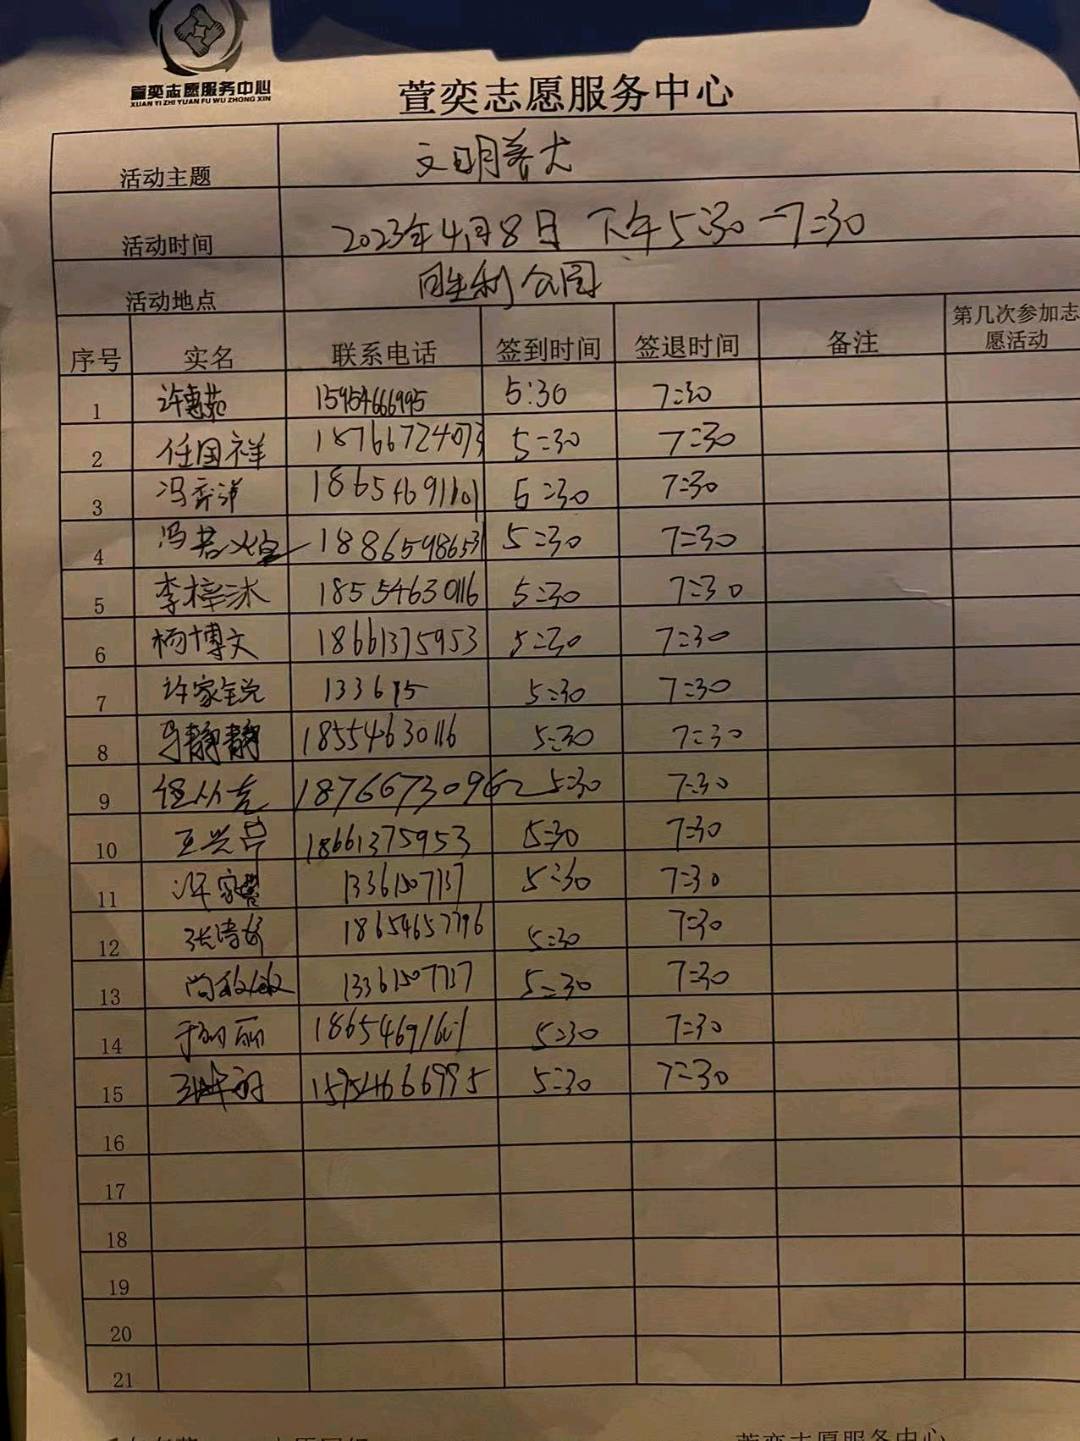 萱奕志愿服务中心
XUAN YI ZHI YUAN FU WU ZHONG XIN
萱奕志愿服务中心
活动主题 文明养犬
活动时间 2023年4月8日 下午5:30-7:30
活动地点 胜利公园
序号 实名 联系电话 签到时间 签退时间 备注 第几次参加志愿活动
1 许惠苑 15954666995 5:30 7:30
2 任国祥 18766724073 5:30 7:30
3 冯 18654691601 5:30 7:30
4 冯若 18865986531 5:30 7:30
5 李梓沐 18554630116 5:30 7:30
6 杨博文 18661375953 5:30 7:30
7 许家锐 133615 5:30 7:30
8 马静静 18554630116 5:30 7:30
9 任从亮 18766730962 5:30 7:30
10 王兴芹 18661375953 5:30 7:30
11 许家 13361507137 5:30 7:30
12 张 18654657796 5:30 7:30
13 尚敏敏 13361507137 5:30 7:30
14 于丽丽 18654691601 5:30 7:30
15 15954666995 5:30 7:30
16
17
18
19
20
21
萱奕志愿服务中心